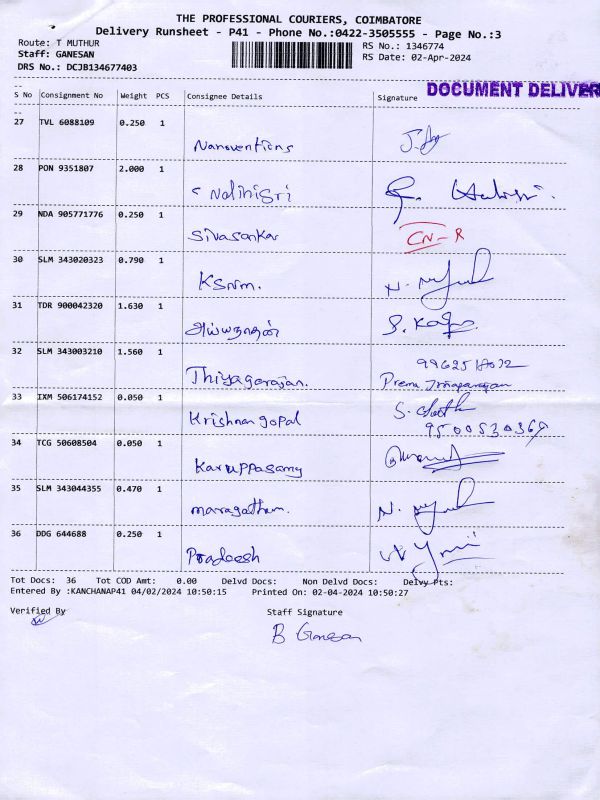 THE PROFESSIONAL COURIERS, COIMBATORE
Delivery Runsheet - P41 - Phone No.:0422-3505555 - Page No.:3
Route: T MUTHUR
RS No.: 1346774
Staff: GANESAN
RS Date: 02-Apr-2024
DRS No.: DCJB134677403
DOCUMENT DELIVER
S No Consignment No Weight PCS Consignee Details Signature
27 TVL 6088109 0.250 1 Nanoventions
28 PON 9351807 2.000 1 Nalinisri
29 NDA 905771776 0.250 1 Sivasankar CN-R
30 SLM 343020323 0.790 1 KSNM.
31 TDR 900042320 1.630 1 அய்யநாதன்
32 SLM 343003210 1.560 1 Thiyagarajan.
Prema
33 IXM 506174152 0.050 1 Krishnan gopal
9500530369
34 TCG 50608504 0.050 1 Karuppasamy
35 SLM 343044355 0.470 1 maragatham.
36 DDG 644688 0.250 1 Pradeesh
Tot Docs: 36 Tot COD Amt: 0.00 Delvd Docs: Non Delvd Docs: Delvy Pts:
Entered By :KANCHANAP41 04/02/2024 10:50:15 Printed On: 02-04-2024 10:50:27
Verified By Staff Signature
B Ganesan